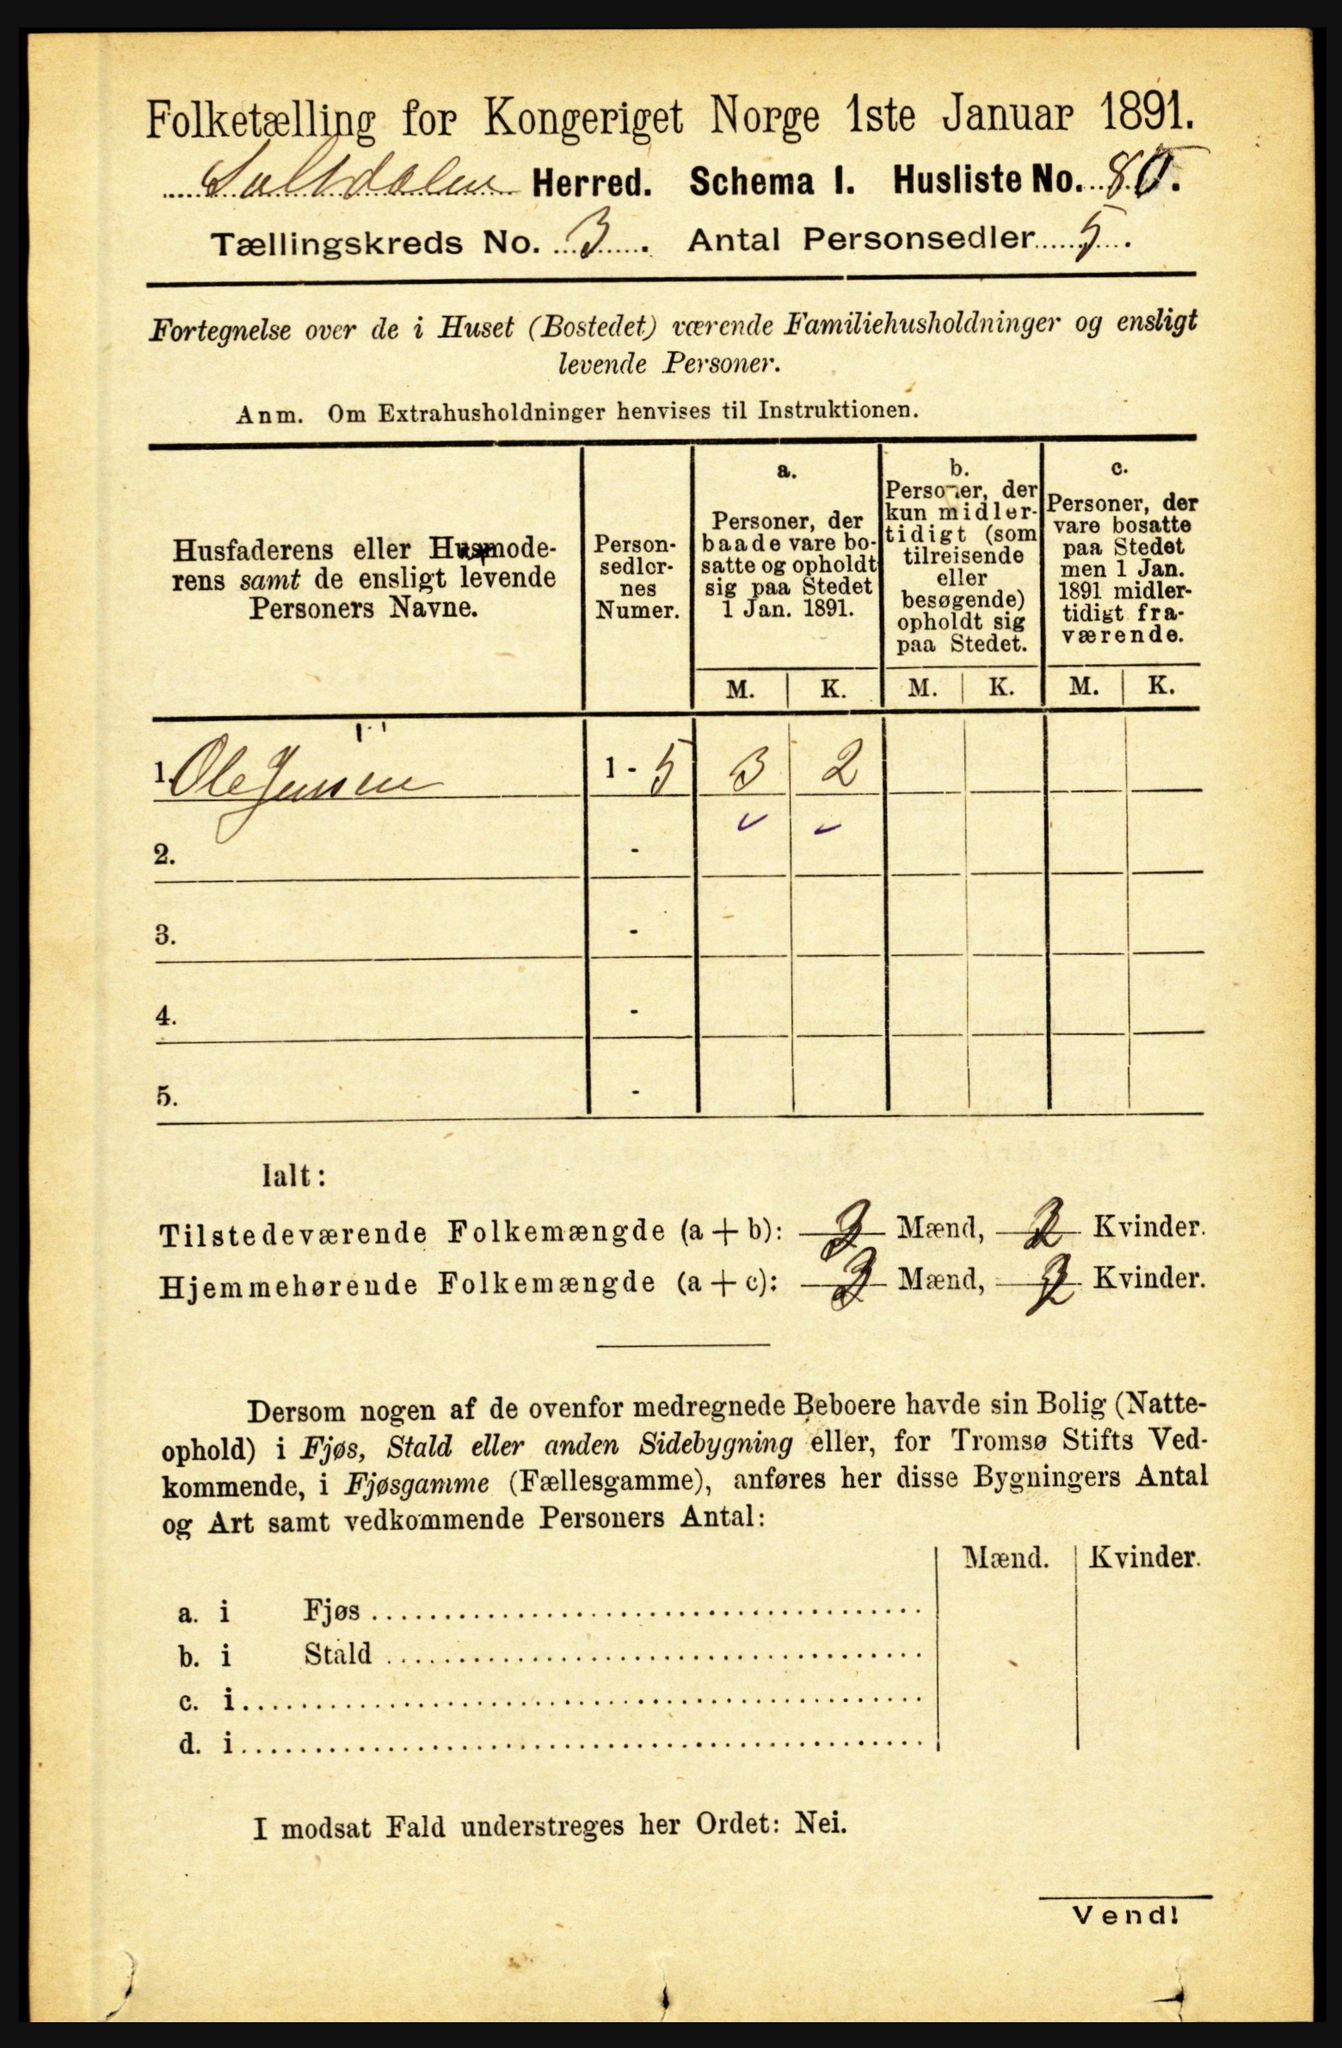 Folketælling for Kongeriget Norge 1ste Januar 1891.
Saltdalen Herred. Schema 1. Husliste No. 80.
Tællingskreds No. 3. Antal Personsedler 5.
Fortegnelse over de i Huset (Bostedet) værende Familiehusholdninger og ensligt
levende Personer.
Anm. Om Extrahusholdninger henvises til Instruktionen.
Husfaderens eller Husmode-
rens samt de ensligt levende
Personers Navne.
Person-
sedler-
nes
Numer.
a.
Personer, der
baade vare bo-
satte og opholdt
sig paa Stedet
1 Jan. 1891.
b.
Personer, der
kun midler-
tidigt (som
tilreisende
eller
besøgende)
opholdt sig
paa Stedet.
c.
Personer, der
vare bosatte
paa Stedet
men 1 Jan.
1891 midler-
tidigt fra-
værende.
M. K. M. K. M. K.
1. Ole Jensen 1 - 5 3 2
2. -
3. -
4. -
5. -
Ialt:
Tilstedeværende Folkemængde (a + b): 3 Mænd, 2 Kvinder.
Hjemmehørende Folkemængde (a + c): 3 Mænd, 2 Kvinder.
Dersom nogen af de ovenfor medregnede Beboere havde sin Bolig (Natte-
ophold) i Fjøs, Stald eller anden Sidebygning eller, for Tromsø Stifts Ved-
kommende, i Fjøsgamme (Fællesgamme), anføres her disse Bygningers Antal
og Art samt vedkommende Personers Antal:
Mænd. Kvinder.
a. i Fjøs
b. i Stald
c. i
d. i
I modsat Fald understreges her Ordet: Nei.
Vend!